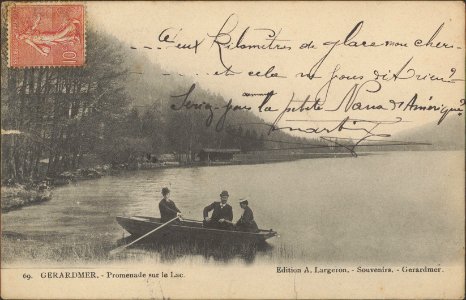 10
... Deux Kilomètres de glace mon cher-
- et cela ne vous dit rien?
Seriez-vous par la petite Nana d'Amérique?
69. GERARDMER. - Promenade sur le Lac.
Edition A. Largeron. - Souvenirs. - Gerardmer.